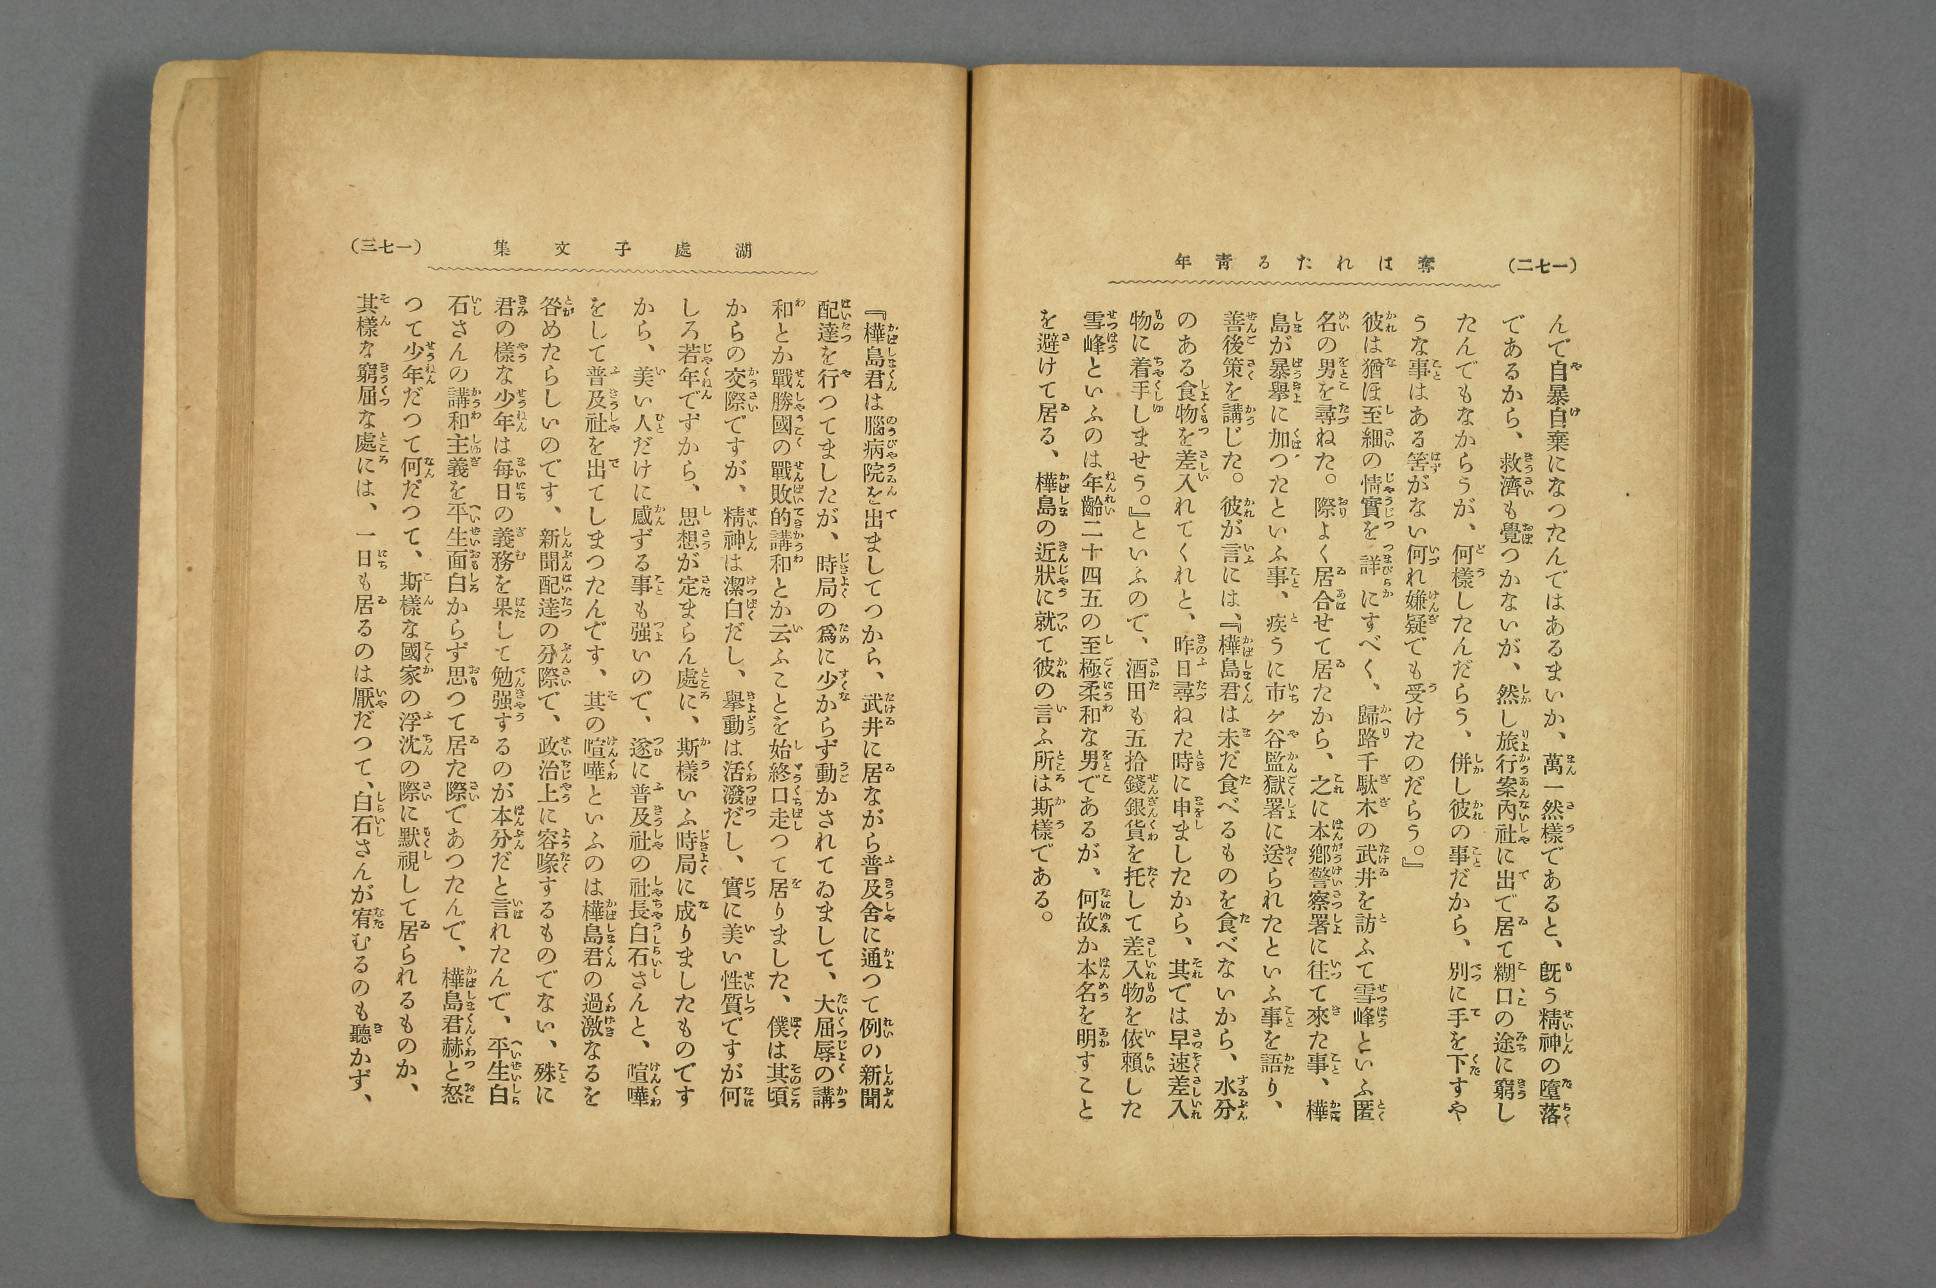 (一七二)
奪はれたる靑年
んで自暴自棄になつたんではあるまいか、萬一然樣であると、旣う精神の墮落
であるから、救濟も覺つかないが、然し旅行案內社に出で居て糊口の途に窮し
たんでもなからうが、何樣したんだらう、併し彼の事だから、別に手を下すや
うな事はある筈がない何れ嫌疑でも受けたのだらう。』
彼は猶ほ至細の情實を詳にすべく、歸路千駄木の武井を訪ふて雪峰といふ匿
名の男を尋ねた。際よく居合せて居たから、之に本鄕警察署に往て來た事、樺
島が暴擧に加つたといふ事、疾うに市ケ谷監獄署に送られたといふ事を語り、
善後策を講じた。彼が言には、『樺島君は未だ食べるものを食べないから、水分
のある食物を差入れてくれと、昨日尋ねた時に申ましたから、其では早速差入
物に着手しませう。』といふので、酒田も五拾錢銀貨を托して差入物を依賴した
雪峰といふのは年齡二十四五の至極柔和な男であるが、何故か本名を明すこと
を避けて居る、樺島の近狀に就て彼の言ふ所は斯樣である。
湖處子文集
(一七三)
『樺島君は腦病院を出ましてつから、武井に居ながら普及舍に通つて例の新聞
配達を行つてましたが、時局の爲に少からず動かされてゐまして、大屈辱の講
和とか戰勝國の戰敗的講和とか云ふことを始終口走つて居りました、僕は其頃
からの交際ですが、精神は潔白だし、擧動は活潑だし、實に美い性質ですが何
しろ若年ですから、思想が定まらん處に、斯樣いふ時局に成りましたものです
から、美い人だけに感ずる事も强いので、遂に普及社の社長白石さんと、喧嘩
をして普及社を出てしまつたんです、其の喧嘩といふのは樺島君の過激なるを
咎めたらしいのです、新聞配達の分際で、政治上に容喙するものでない、殊に
君の樣な少年は每日の義務を果して勉强するのが本分だと言れたんで、平生白
石さんの講和主義を平生面白からず思つて居た際であつたんで、樺島君赫と怒
つて少年だつて何だつて、斯樣な國家の浮沈の際に默視して居られるものか、
其樣な窮屈な處には、一日も居るのは厭だつて、白石さんが宥むるのも聽かず、